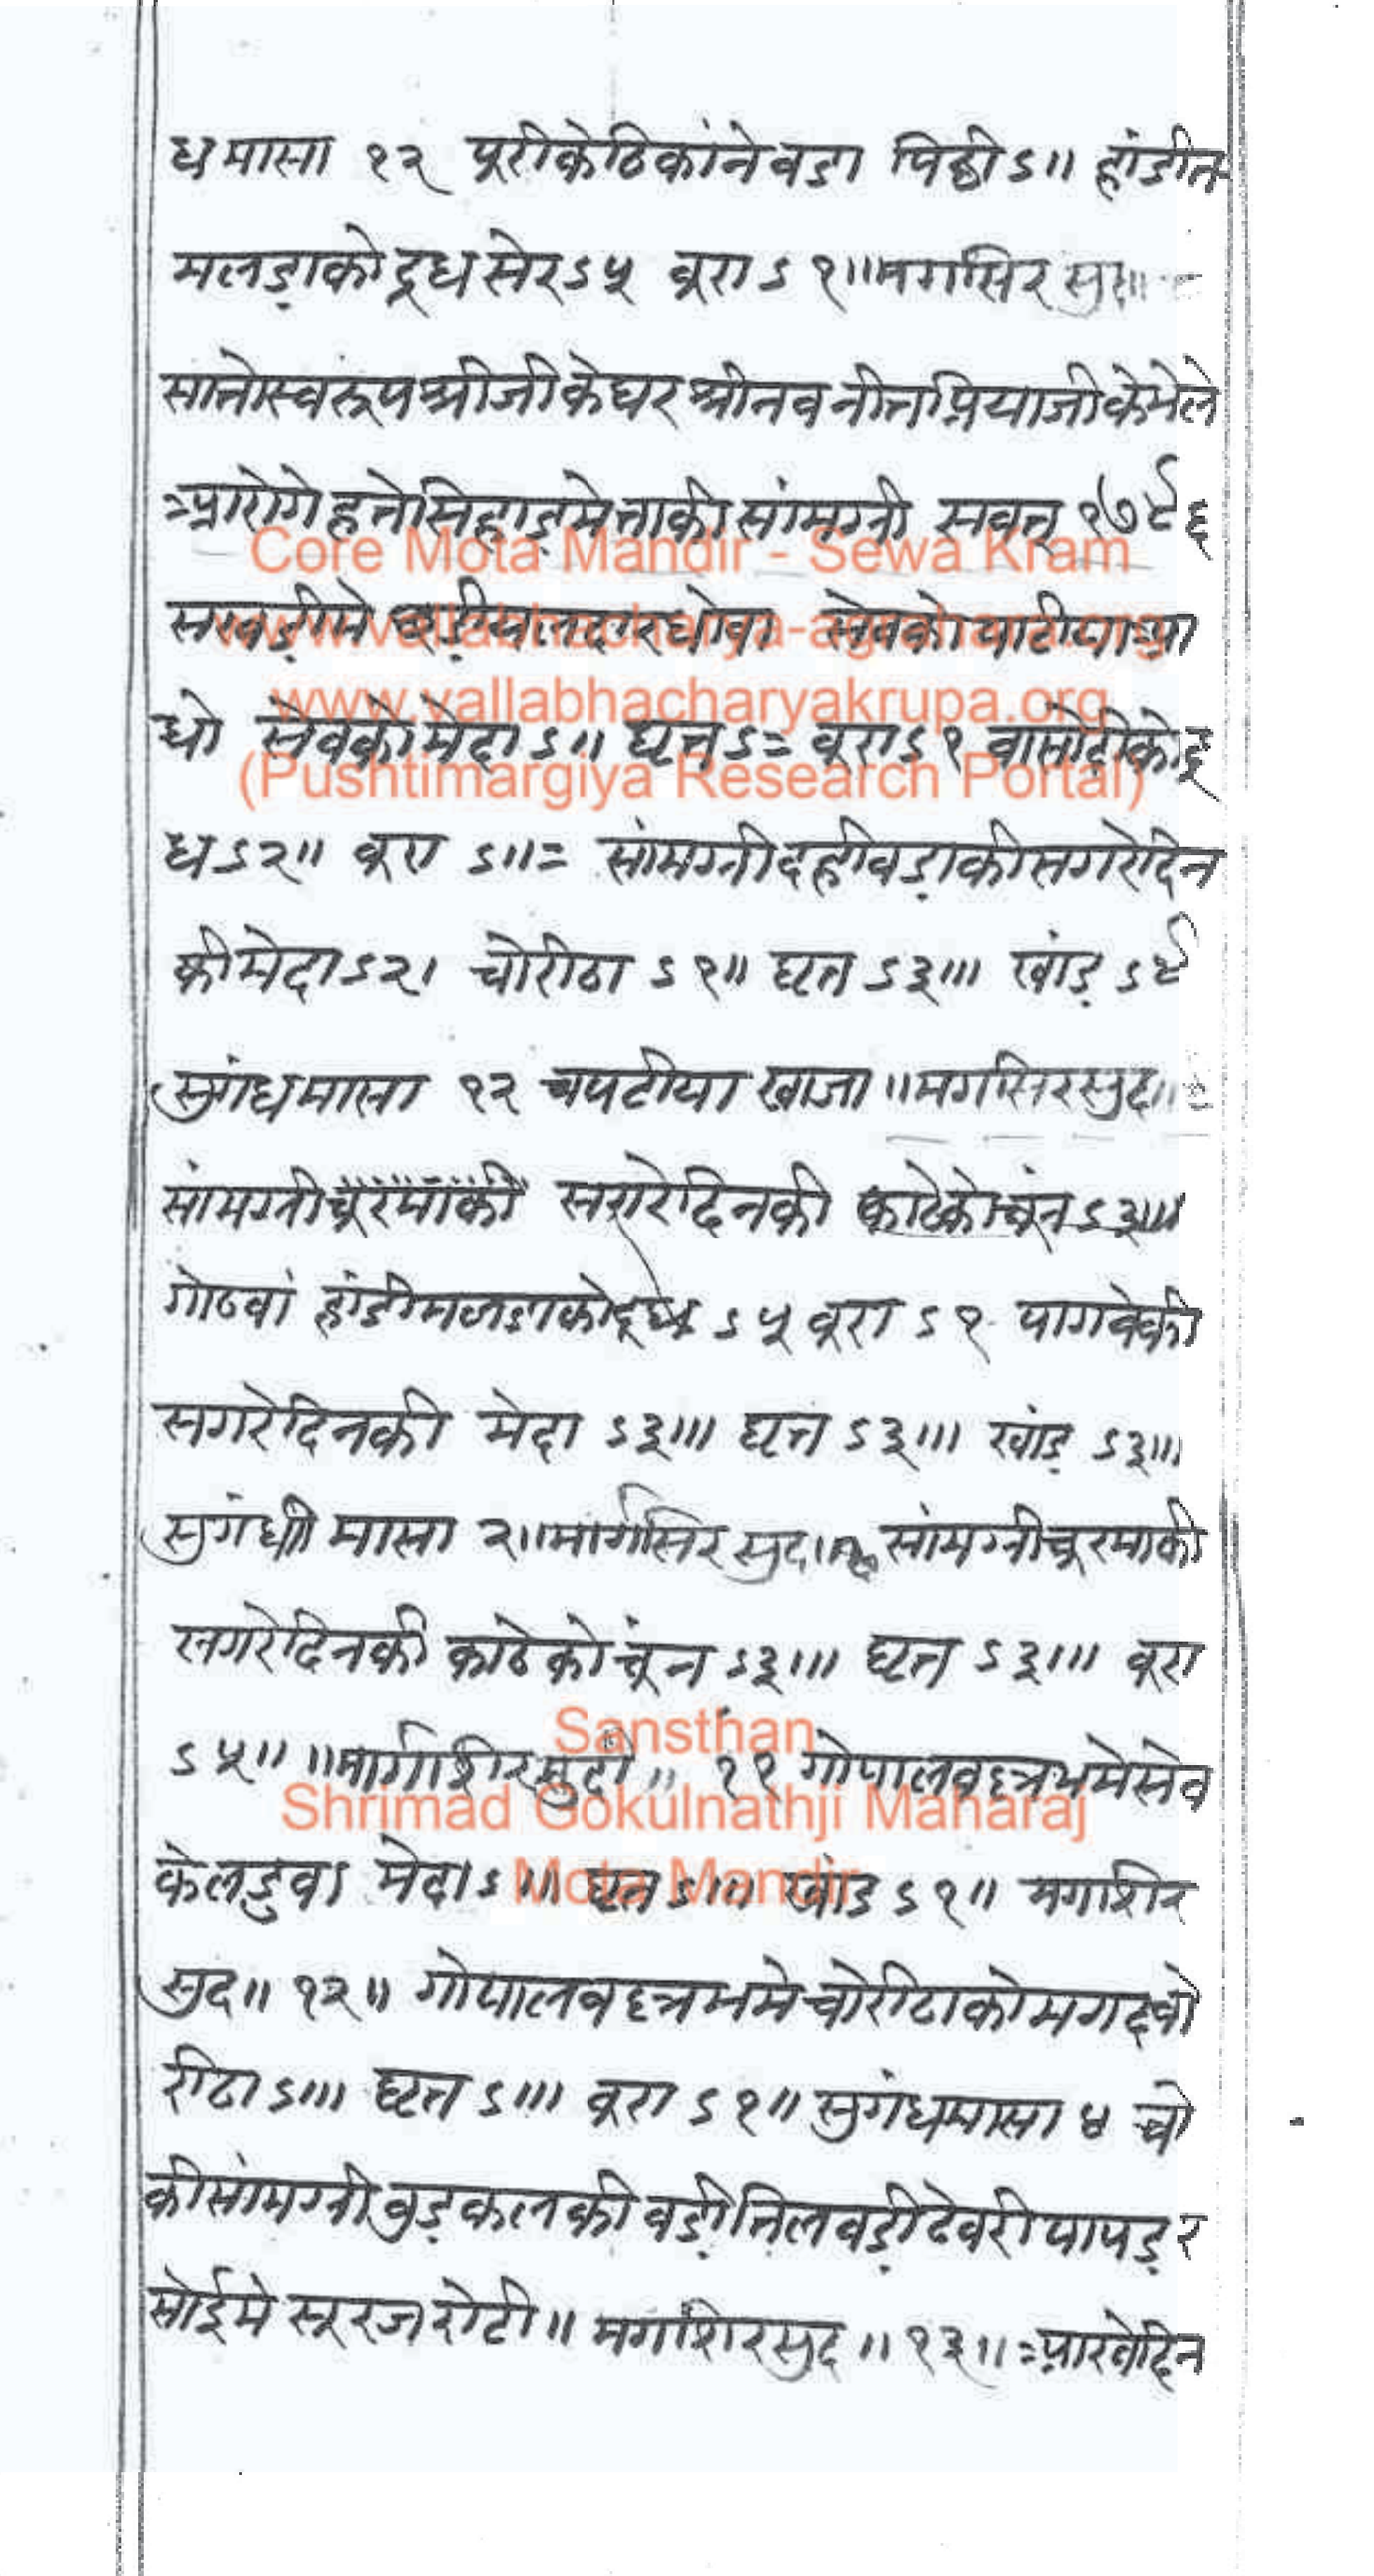 ध मासा १२ पूरीकेठिकांने वडा पिठ्ठी ऽ॥ हांडीत
मलड़ाको दूध सेर ऽ५ बूरा ऽ१॥ मगसिर सुद॥
सातोस्वरूप श्रीजीकेघर श्रीनवनीतप्रियाजीकेमेले
आरोगे हते सिहाड़मे ताकी सांमग्री सवत् १७९६
सखड़ीमे दार धोवा सेवको पाटीया आ
धो सेवको मेदा ऽ॥ घृत ऽ= बूरा ऽ१ वासोंदीको दू
ध ऽ२॥ बूरा ऽ॥= सांमग्री दहीवड़ाकी सगरेदिन
की मेदा ऽ२। चोरीठा ऽ१॥ घृत ऽ३॥। खांड़ ऽ९
सुगंध मासा १२ चपटीया खाजा ॥ मगसिर सुद॥
सांमग्री चूरमांकी सगरेदिनकी काठेको चूंन ऽ३॥।
गोठवां हांडीमलडाको दूध ऽ५ बूरा ऽ१ पागवेकी
सगरेदिनकी मेदा ऽ३॥। घृत ऽ३॥। खांड़ ऽ३॥।
सुगंधी मासा २॥ मार्गसिर सुद॥ सांमग्री चूरमाकी
सगरेदिनकी काठेको चूंन ऽ३॥। घृत ऽ३॥। बूरा
ऽ५॥ ॥मार्गाशिर सुदी॥ ११ गोपालवल्लभमे सेव
केलडुवा मेदा ऽ॥। घृत ऽ॥। खांड ऽ१॥ मगशिर
सुद॥ १२॥ गोपालवल्लभमे चोरीठाको मगद चो
रीठा ऽ॥। घृत ऽ॥। बूरा ऽ१॥ सुगंध मासा ४ चो
की सांमग्री बुड़कलकी वड़ी तिलवड़ी ढेबरी पापड़ र
सोईमे सूरज रोटी॥ मगशिर सुद॥ १३॥ आखेदिन
Core Mota Mandir - Sewa Kram
www.vallabhacharyakrupa.org
(Pushtimargiya Research Portal)
Sansthan
Shrimad Gokulnathji Maharaj
Mota Mandir